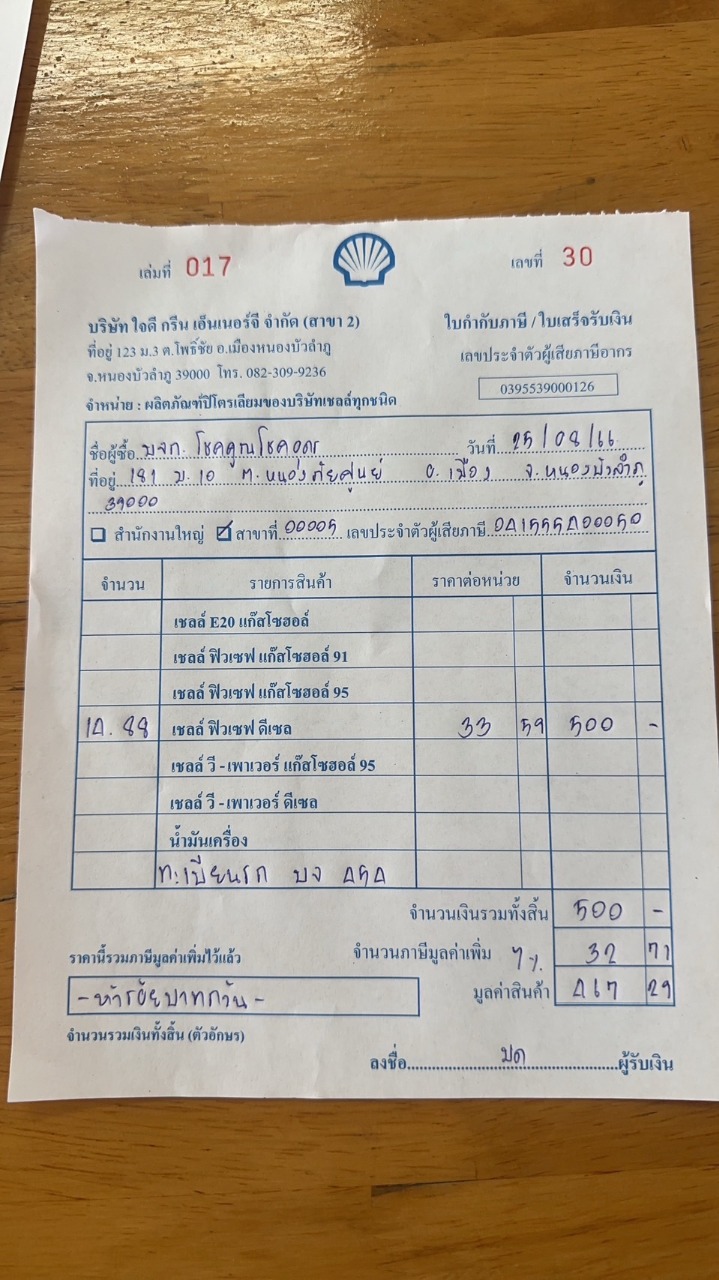 เล่มที่ 017 เลขที่ 30
บริษัท ใจดี กรีน เอ็นเนอร์จี จำกัด (สาขา 2) ใบกำกับภาษี / ใบเสร็จรับเงิน
ที่อยู่ 123 ม.3 ต.โพธิ์ชัย อ.เมืองหนองบัวลำภู เลขประจำตัวผู้เสียภาษีอากร
จ.หนองบัวลำภู 39000 โทร. 082-309-9236 0395539000126
จำหน่าย : ผลิตภัณฑ์ปิโตรเลียมของบริษัทเชลล์ทุกชนิด
ชื่อผู้ซื้อ บจก. โชคคูณโชคอุดร วันที่ 25/08/66
ที่อยู่ 181 ม.10 ต.หนองภัยศูนย์ อ.เมือง จ.หนองบัวลำภู
39000
สำนักงานใหญ่ ✓ สาขาที่ 00005 เลขประจำตัวผู้เสียภาษี 0415554000050
จำนวน รายการสินค้า ราคาต่อหน่วย จำนวนเงิน
เชลล์ E20 แก๊สโซฮอล์
เชลล์ ฟิวเซฟ แก๊สโซฮอล์ 91
เชลล์ ฟิวเซฟ แก๊สโซฮอล์ 95
14.88 เชลล์ ฟิวเซฟ ดีเซล 33 59 500 -
เชลล์ วี - เพาเวอร์ แก๊สโซฮอล์ 95
เชลล์ วี - เพาเวอร์ ดีเซล
น้ำมันเครื่อง
ทะเบียนรถ บจ 454
จำนวนเงินรวมทั้งสิ้น 500 -
ราคานี้รวมภาษีมูลค่าเพิ่มไว้แล้ว จำนวนภาษีมูลค่าเพิ่ม 7% 32 71
-ห้าร้อยบาทถ้วน- มูลค่าสินค้า 467 29
จำนวนรวมเงินทั้งสิ้น (ตัวอักษร)
ลงชื่อ ผู้รับเงิน